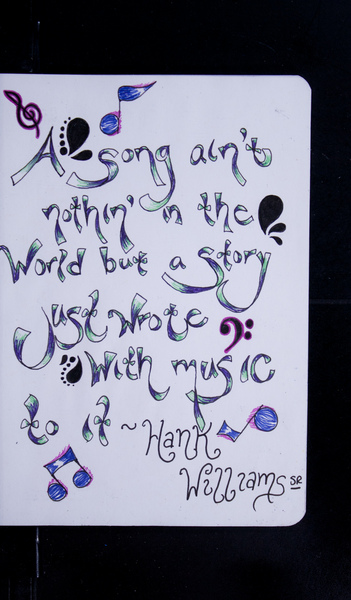 A song ain't
nothin' in the
World but a story
just wrote
with music
to it ~ Hank
Williams SR